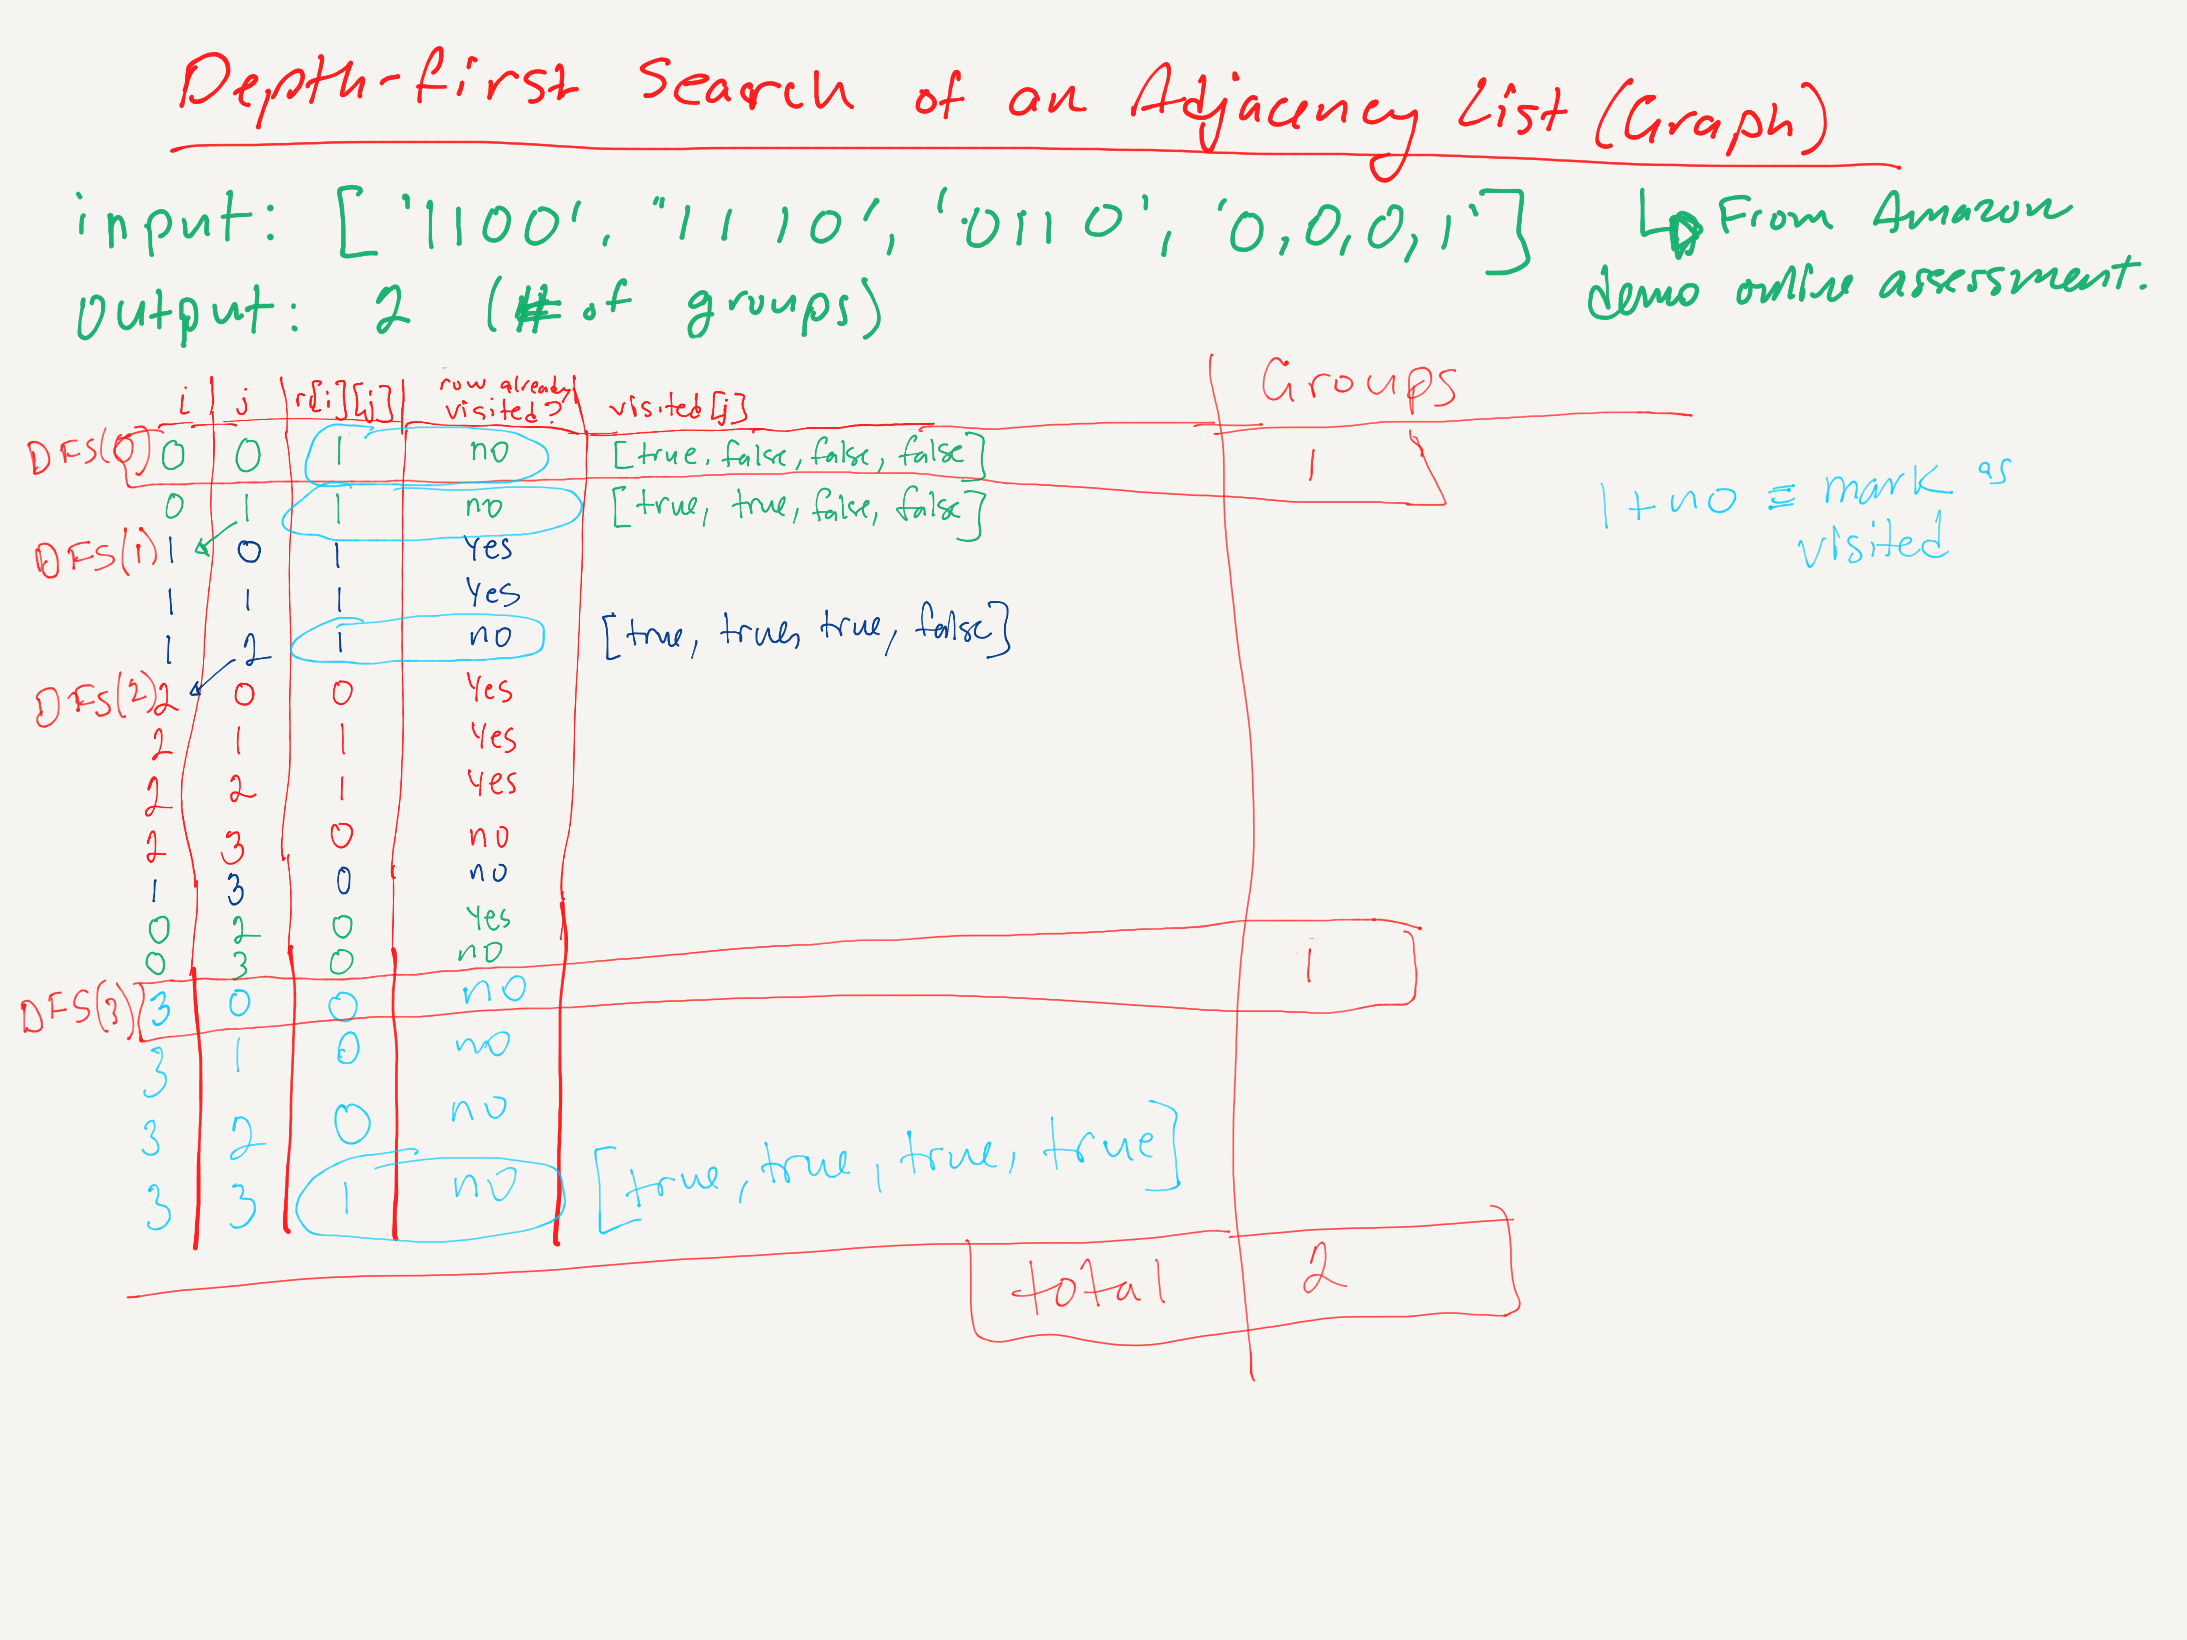 Depth-first Search of an Adjacency List (Graph)
input: ['1100', "1110', '0110', '0,0,0,1']
↳ From Amazon
demo online assessment.
output: 2 (# of groups)
i j r[i][j] row already visited? visited[j] Groups
DFS(0) 0 0 1 no [true, false, false, false] 1
0 1 1 no [true, true, false, false]
1 + no ≡ mark as
visited
DFS(1) 1 0 1 Yes
1 1 1 Yes
1 2 1 no [true, true, true, false]
DFS(2) 2 0 0 Yes
2 1 1 Yes
2 2 1 Yes
2 3 0 no
1 3 0 no
0 2 0 Yes
0 3 0 no
DFS(3) 3 0 0 no 1
3 1 0 no
3 2 0 no
3 3 1 no [true, true, true, true]
total 2